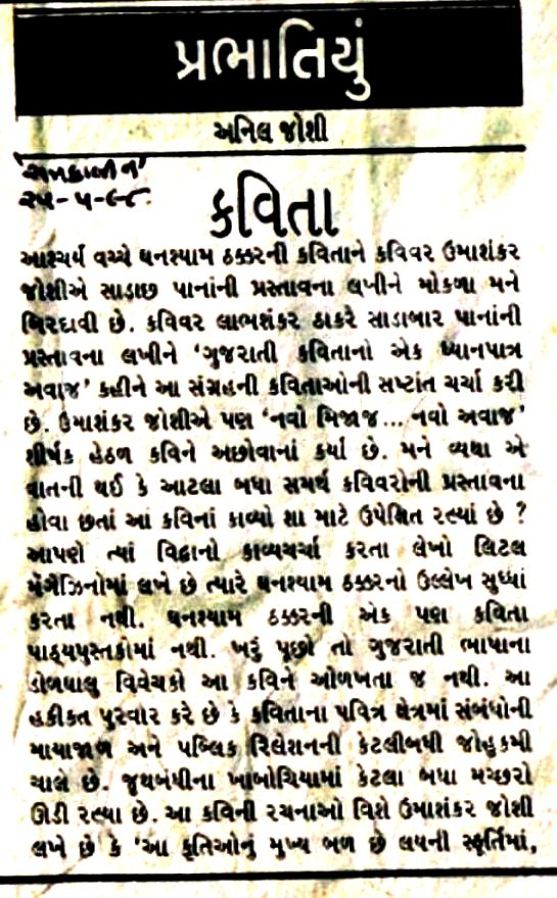 પ્રભાતિયું
અનિલ જોશી
'સમકાલીન'
૨૫-૫-૯૮
કવિતા
આશ્ચર્ય વચ્ચે ઘનશ્યામ ઠક્કરની કવિતાને કવિવર ઉમાશંકર
જોશીએ સાડાછ પાનાંની પ્રસ્તાવના લખીને મોકળા મને
બિરદાવી છે. કવિવર લાભશંકર ઠાકરે સાડાબાર પાનાંની
પ્રસ્તાવના લખીને 'ગુજરાતી કવિતાનો એક ધ્યાનપાત્ર
અવાજ' કહીને આ સંગ્રહની કવિતાઓની સષ્ટાંત ચર્ચા કરી
છે. ઉમાશંકર જોશીએ પણ 'નવો મિજાજ... નવો અવાજ'
શીર્ષક હેઠળ કવિને અછોવાનાં કર્યા છે. મને વ્યથા એ
વાતની થઈ કે આટલા બધા સમર્થ કવિવરોની પ્રસ્તાવના
હોવા છતાં આ કવિનાં કાવ્યો શા માટે ઉપેક્ષિત રહ્યાં છે ?
આપણે ત્યાં વિદ્વાનો કાવ્યચર્ચા કરતા લેખો લિટલ
મૅગેઝિનોમાં લખે છે ત્યારે ઘનશ્યામ ઠક્કરનો ઉલ્લેખ સુધ્ધાં
કરતા નથી. ઘનશ્યામ ઠક્કરની એક પણ કવિતા
પાઠ્યપુસ્તકોમાં નથી. ખરું પૂછો તો ગુજરાતી ભાષાના
ડોળઘાલુ વિવેચકો આ કવિને ઓળખતા જ નથી. આ
હકીકત પુરવાર કરે છે કે કવિતાના પવિત્ર ક્ષેત્રમાં સંબંધોની
માયાજાળ અને પબ્લિક રિલેશનની કેટલીબધી જોહુકમી
ચાલે છે. જૂથબંધીના ખાબોચિયામાં કેટલા બધા મચ્છરો
ઊડી રહ્યા છે. આ કવિની રચનાઓ વિશે ઉમાશંકર જોશી
લખે છે કે 'આ કૃતિઓનું મુખ્ય બળ છે લયની સ્ફૂર્તિમાં,